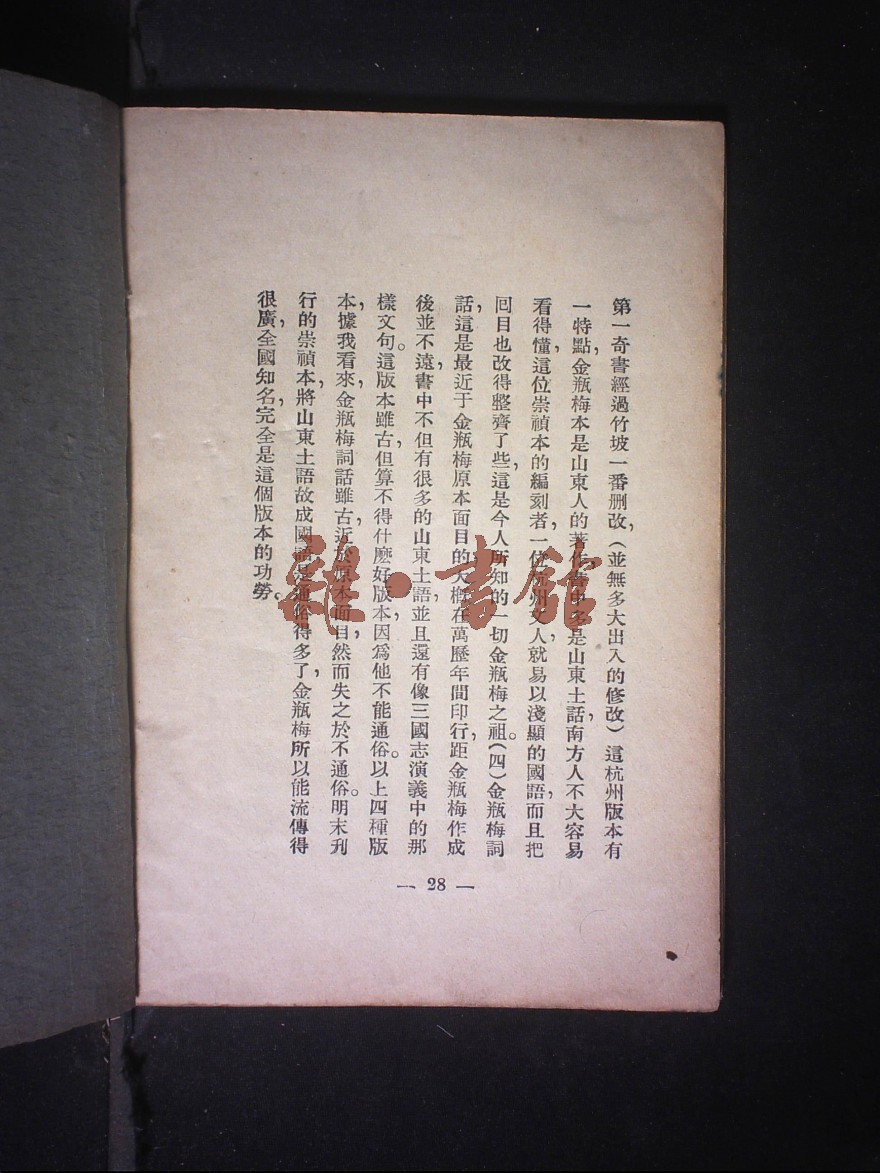 第一奇書經過竹坡一番删改，（並無多大出入的修改）這杭州版本有
一特點，金瓶梅本是山東人的著作，書中多是山東土話，南方人不大容易
看得懂，這位崇禎本的編刻者，一位杭州文人，就易以淺顯的國語，而且把
囘目也改得整齊了些，這是今人所知的一切金瓶梅之祖。（四）金瓶梅詞
話，這是最近于金瓶梅原本面目的，大槪在萬歷年間印行，距金瓶梅作成
後並不遠，書中不但有很多的山東土語，並且還有像三國志演義中的那
樣文句。這版本雖古，但算不得什麽好版本，因爲他不能通俗。以上四種版
本，據我看來，金瓶梅詞話雖古，近於原本面目，然而失之於不通俗。明末刋
行的崇禎本，將山東土語故成國語，是通俗得多了，金瓶梅所以能流傳得
很廣，全國知名，完全是這個版本的功勞。
— 28 —
龍·書館